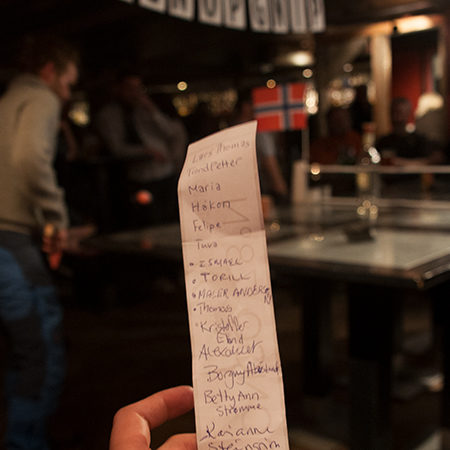 Lars Thomas
TrondPetter
Maria
Håkon
Felipe
Tuva
• ISMAEL
• TORILL
• MALER ANDERS
• Thomas
Kristoffer
Eivind
Alexander
Borgny
BettyAnn
Strømme
Karianne